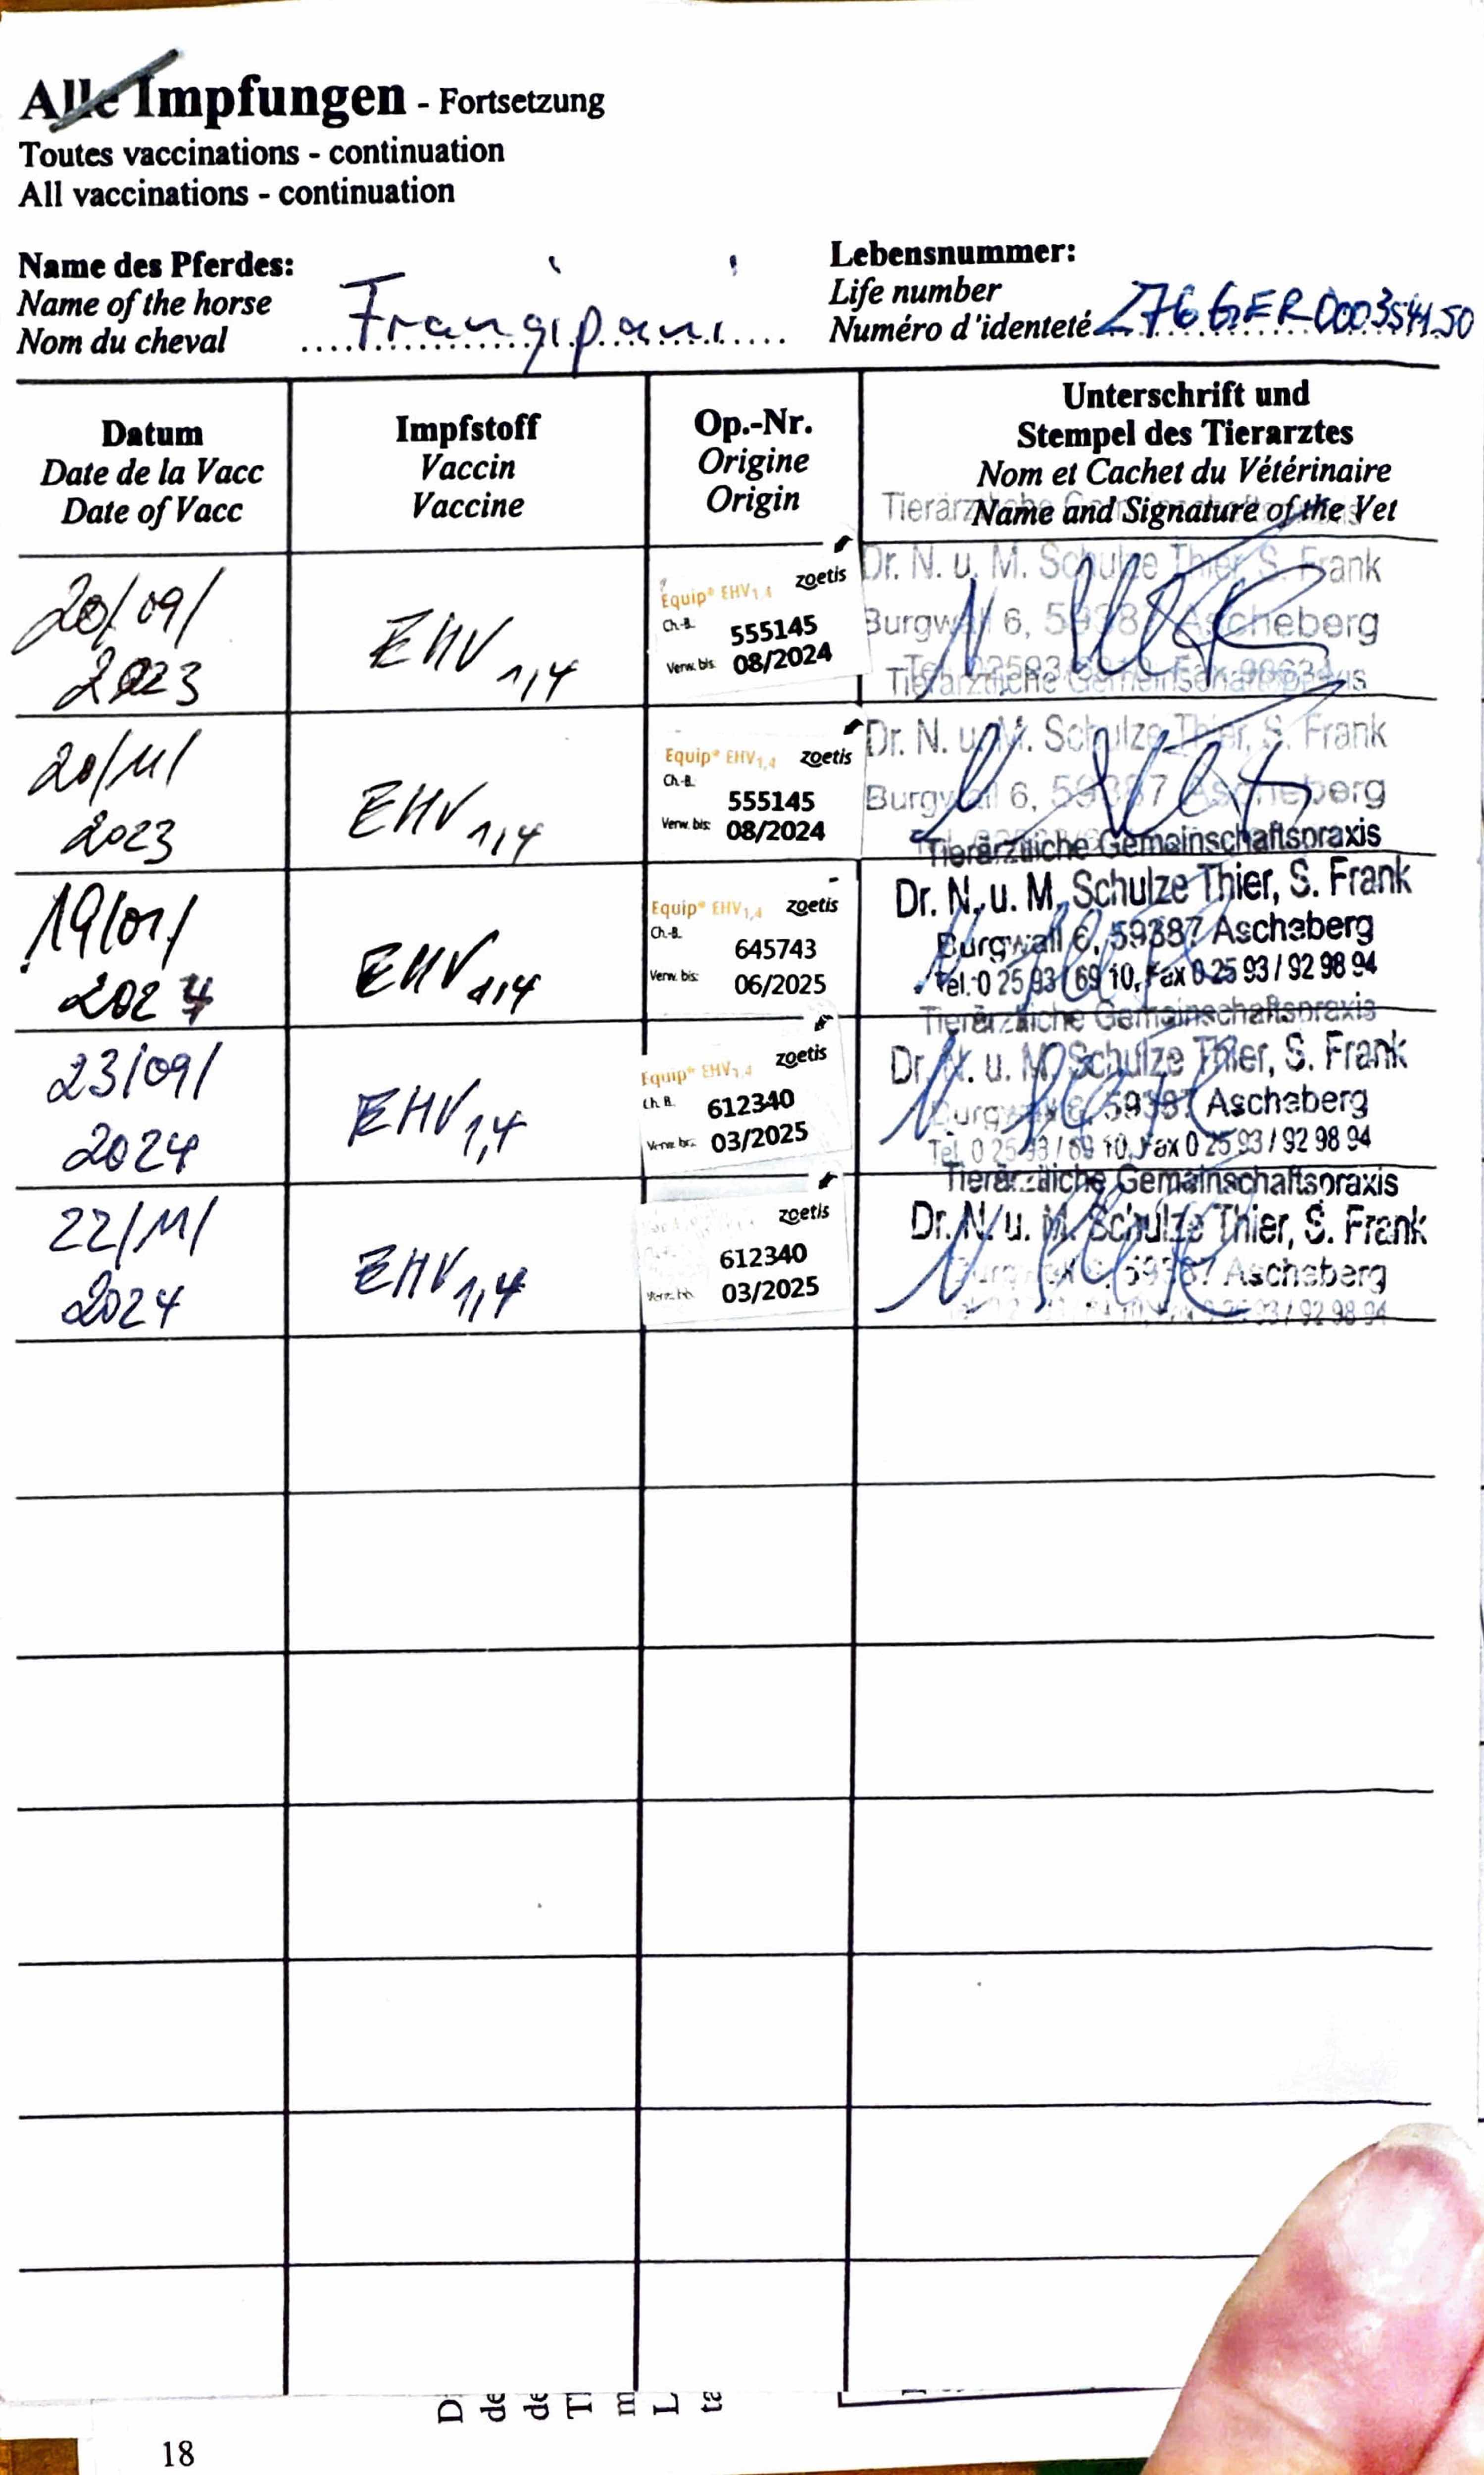 Alle Impfungen - Fortsetzung
Toutes vaccinations - continuation
All vaccinations - continuation
Name des Pferdes:
Name of the horse
Nom du cheval
Frangipani
Lebensnummer:
Life number
Numéro d'identeté
276GER000354150
Datum
Date de la Vacc
Date of Vacc
Impfstoff
Vaccin
Vaccine
Op.-Nr.
Origine
Origin
Unterschrift und
Stempel des Tierarztes
Nom et Cachet du Vétérinaire
Name and Signature of the Vet
20/09/
2023
EHV 1,4
Equip® EHV1,4 zoetis
Ch.-B. 555145
Verw. bis: 08/2024
Dr. N. u. M. Schulze Thier, S. Frank
Burgwall 6, 59387 Ascheberg
20/11/
2023
EHV 1,4
Equip® EHV1,4 zoetis
Ch.-B. 555145
Verw. bis: 08/2024
Tierärztliche Gemeinschaftspraxis
Dr. N. u. M. Schulze Thier, S. Frank
Burgwall 6, 59387 Ascheberg
19/01/
2024
EHV 1,4
Equip® EHV1,4 zoetis
Ch.-B. 645743
Verw. bis: 06/2025
Tierärztliche Gemeinschaftspraxis
Dr. N. u. M. Schulze Thier, S. Frank
Burgwall 6, 59387 Ascheberg
Tel. 0 25 93 / 69 10, Fax 0 25 93 / 92 98 94
23/09/
2024
EHV 1,4
Equip® EHV1,4 zoetis
Ch.-B. 612340
Verw. bis: 03/2025
Tierärztliche Gemeinschaftspraxis
Dr. N. u. M. Schulze Thier, S. Frank
Burgwall 6, 59387 Ascheberg
Tel. 0 25 93 / 69 10, Fax 0 25 93 / 92 98 94
22/11/
2024
EHV 1,4
zoetis
612340
Verw. bis: 03/2025
Tierärztliche Gemeinschaftspraxis
Dr. N. u. M. Schulze Thier, S. Frank
Burgwall 6, 59387 Ascheberg
93 / 92 98 94
18